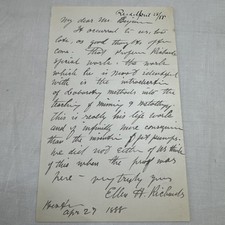 My dear Mr.
It occurred to us, too
late, as good things often
come. That Professor Richards
special work. the work
which he is most identified
with is the introduction
of Laboratory methods into the
teaching of mining & metallurgy
this is really his life work
and of infinitely more consequence
than the invention of jet pumps.
we did not either of us think
of this when the proof was
here - very truly yours
Ellen H. Richards
Apr 27 1888